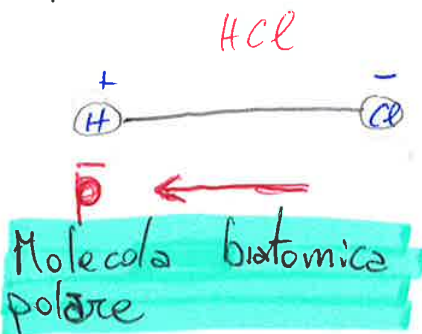 HCl
+ −
H Cl
p̄
Molecola biatomica
polare